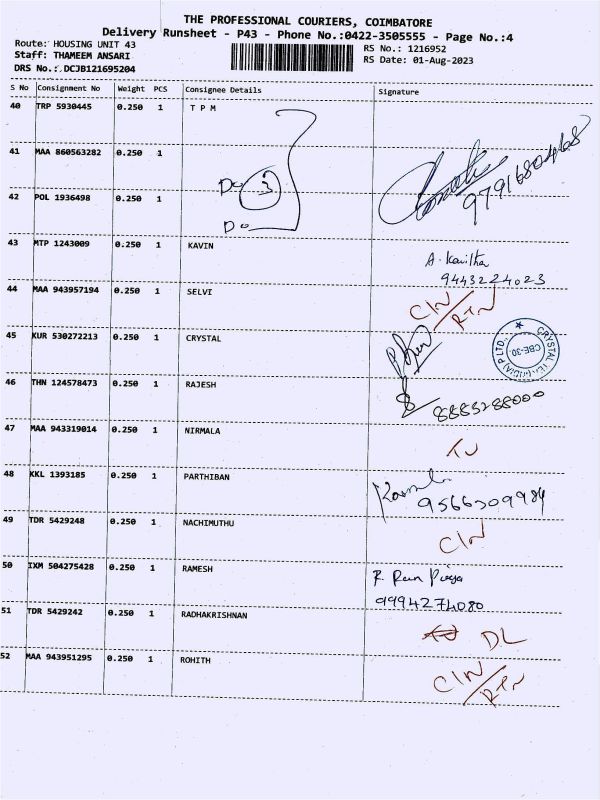 THE PROFESSIONAL COURIERS, COIMBATORE
Delivery Runsheet - P43 - Phone No.:0422-3505555 - Page No.:4
Route: HOUSING UNIT 43
RS No.: 1216952
Staff: THAMEEM ANSARI
RS Date: 01-Aug-2023
DRS No.:.DCJB121695204
S No Consignment No Weight PCS Consignee Details Signature
40 TRP 5930445 0.250 1 T P M
41 MAA 860563282 0.250 1
9791680468
Do 3
42 POL 1936498 0.250 1
Do
43 MTP 1243009 0.250 1 KAVIN
A. Kavitha
9443224023
44 MAA 943957194 0.250 1 SELVI
CIN/RTN
45 KUR 530272213 0.250 1 CRYSTAL
CRYSTAL (INDIA) P LTD., CBE-30.
46 THN 124578473 0.250 1 RAJESH
8883288000
47 MAA 943319014 0.250 1 NIRMALA
48 KKL 1393185 0.250 1 PARTHIBAN
9566309984
49 TDR 5429248 0.250 1 NACHIMUTHU
CIN
50 IXM 504275428 0.250 1 RAMESH
R. Ram Priya
9994274080
51 TDR 5429242 0.250 1 RADHAKRISHNAN
DL
52 MAA 943951295 0.250 1 ROHITH
CIN/RTN